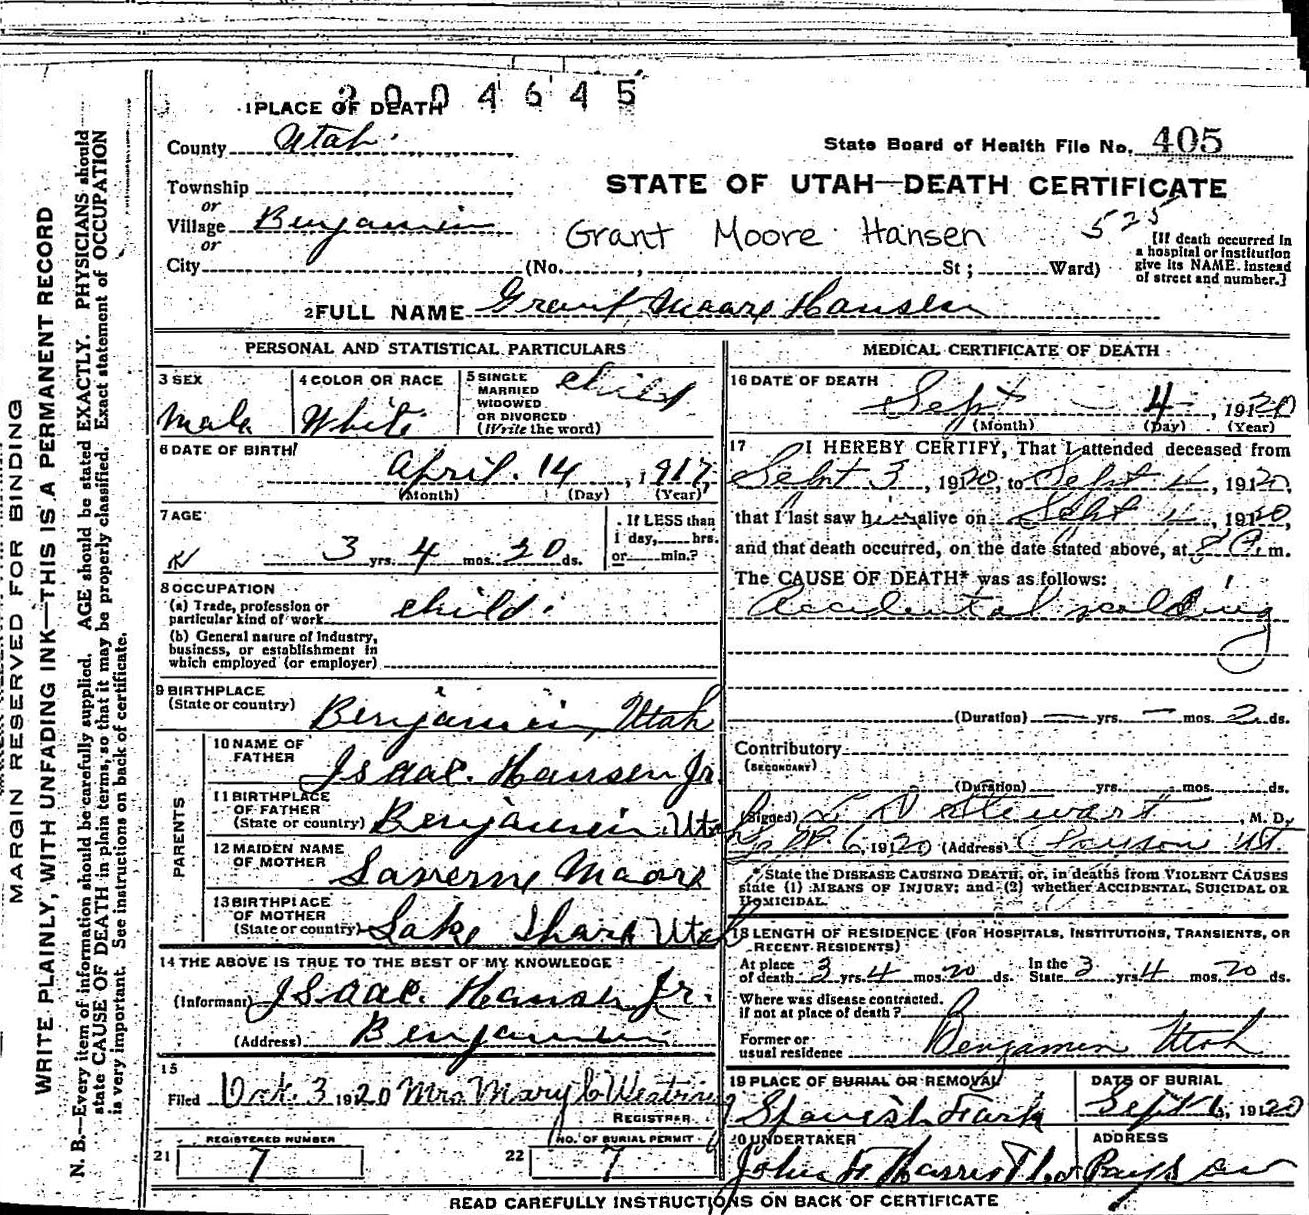 2004645
1 PLACE OF DEATH
County Utah
State Board of Health File No. 405
Township
or
STATE OF UTAH—DEATH CERTIFICATE
Village Benjamin
or
Grant Moore Hansen
525
[If death occurred in a hospital or institution give its NAME instead of street and number.]
City (No. , St; Ward)
2 FULL NAME Grant Moore Hansen
PERSONAL AND STATISTICAL PARTICULARS
3 SEX
Male
4 COLOR OR RACE
White
5 SINGLE
MARRIED
WIDOWED
OR DIVORCED
(Write the word)
child
6 DATE OF BIRTH
April 14, 1917
(Month) (Day) (Year)
7 AGE
3 yrs. 4 mos. 20 ds.
If LESS than
1 day, hrs.
or min.?
8 OCCUPATION
(a) Trade, profession or
particular kind of work child
(b) General nature of industry,
business, or establishment in
which employed (or employer)
9 BIRTHPLACE
(State or country) Benjamin, Utah
PARENTS
10 NAME OF
FATHER Isaac Hansen Jr.
11 BIRTHPLACE
OF FATHER
(State or country) Benjamin Utah
12 MAIDEN NAME
OF MOTHER Laverne Moore
13 BIRTHPLACE
OF MOTHER
(State or country) Lake Shore Utah
14 THE ABOVE IS TRUE TO THE BEST OF MY KNOWLEDGE
(Informant) Isaac Hansen Jr.
(Address) Benjamin
15
Filed Oct. 3 1920 Mrs Mary C
REGISTRAR
REGISTERED NUMBER
21 7
NO. OF BURIAL PERMIT
22 7
MEDICAL CERTIFICATE OF DEATH
16 DATE OF DEATH
Sept 4, 1920
(Month) (Day) (Year)
17 I HEREBY CERTIFY, That I attended deceased from
Sept 3, 1920, to Sept 4, 1920,
that I last saw him alive on Sept 4, 1920,
and that death occurred, on the date stated above, at 8 m.
The CAUSE OF DEATH* was as follows:
Accidental scalding
(Duration) — yrs. — mos. 2 ds.
Contributory
(SECONDARY)
(Duration) yrs. mos. ds.
(Signed) L D Stewart, M. D.
Sept. 6, 1920 (Address) Payson Ut.
*State the DISEASE CAUSING DEATH, or, in deaths from VIOLENT CAUSES
state (1) MEANS OF INJURY; and (2) whether ACCIDENTAL, SUICIDAL OR
HOMICIDAL.
18 LENGTH OF RESIDENCE (FOR HOSPITALS, INSTITUTIONS, TRANSIENTS, OR
RECENT RESIDENTS)
At place
of death 3 yrs. 4 mos. 20 ds. In the
State 3 yrs. 4 mos. 20 ds.
Where was disease contracted.
if not at place of death?
Former or
usual residence Benjamin Utah
19 PLACE OF BURIAL OR REMOVAL
Spanish Fork
DATE OF BURIAL
Sept 6, 1920
20 UNDERTAKER
John F Harris
ADDRESS
Payson
READ CAREFULLY INSTRUCTIONS ON BACK OF CERTIFICATE
MARGIN RESERVED FOR BINDING
WRITE PLAINLY, WITH UNFADING INK—THIS IS A PERMANENT RECORD
N. B.—Every item of information should be carefully supplied. AGE should be stated EXACTLY. PHYSICIANS should
state CAUSE OF DEATH in plain terms, so that it may be properly classified. Exact statement of OCCUPATION
is very important. See instructions on back of certificate.